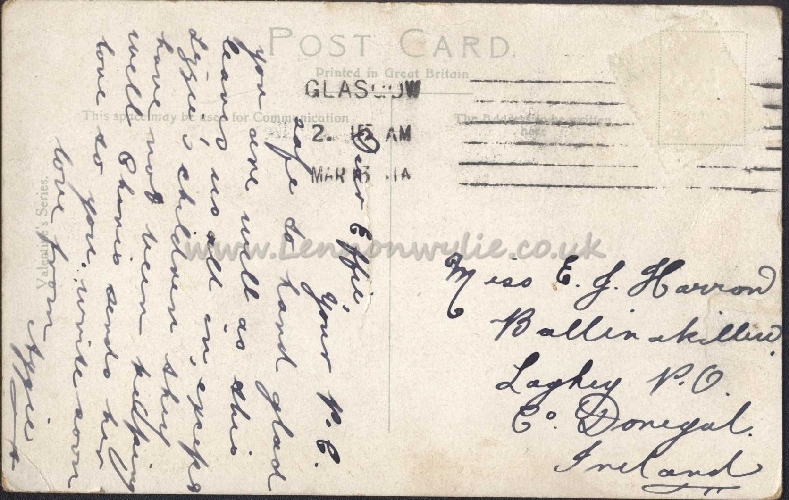 POST CARD.
Printed in Great Britain
GLASGOW
2. 15 AM
MAR
This space may be used for Communication
The Address to be written
here
Valentine's Series.
Dear Effie, your P.C.
safe to hand glad
you are well as this
leaves us all in, except
Lizzie's children they
have not been keeping
well. sends her
love to you. write soon
love from
Aggie
x
Miss E. J. Harron
Ballinakillew.
Laghey P.O.
Co. Donegal.
Ireland
www.Lennonwylie.co.uk